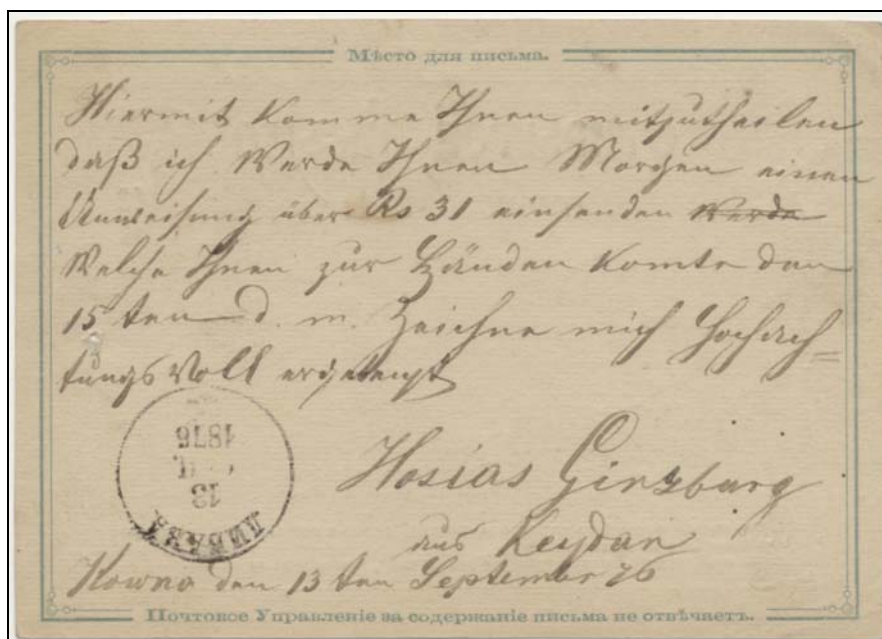 Мѣсто для письма.
Hiermit komme Ihnen mitzutheilen
daß ich Werde Ihnen Morgen einen
Anweisung über Rs 31 einsenden Werde
Welche Ihnen zur Händen komte den
15 ten d. m. Zeichne mich Hochach=
tungsVoll ergebenst
Hosias Ginzburg
aus Keydan
Kowno den 13 ten September 76
ЛИБАВА
13
1876
Почтовое Управленіе за содержаніе письма не отвѣчаетъ.